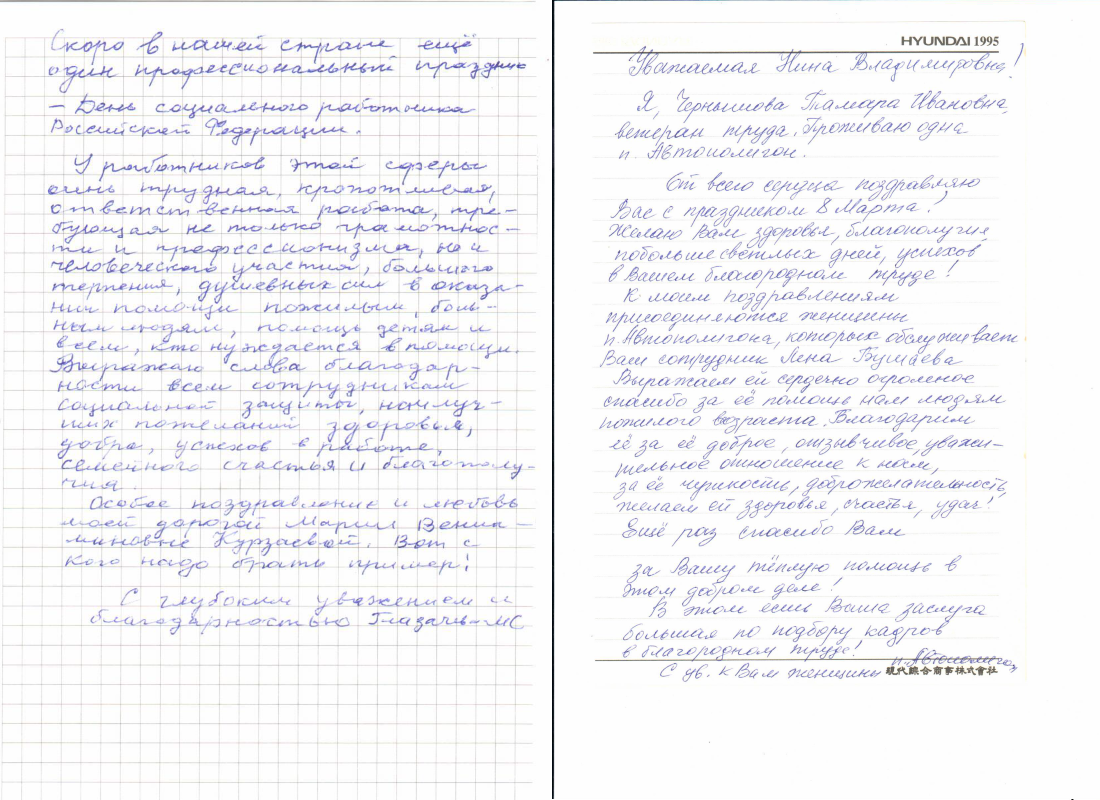 Скоро в нашей стране ещё
один профессиональный праздник
— День социального работника
Российской Федерации.
У работников этой сферы
очень трудная, кропотливая,
ответственная работа, тре-
бующая не только грамотнос-
ти и професссионизма, но и
человеческого участия, большого
терпения, душевных сил в оказа-
нии помощи пожилым, боль-
ным людям, помощь детям и
всем, кто нуждается в помощи.
Выражаю слова благодар-
ности всем сотрудникам
социальной защиты, наилуч-
ших пожеланий здоровья,
добра, успехов в работе,
семейного счастья и благополу-
чия.
Особое поздравление и любовь
моей дорогой Марии Вениа-
миновне Курзаевой. Вот с
кого надо брать пример!
С глубоким уважением и
благодарностью МС
HYUNDAI 1995
Уважаемая Нина Владимировна!
Я, Чернышова Тамара Ивановна,
ветеран труда. Проживаю одна
п. Автополигон.
От всего сердца поздравляю
Вас с праздником 8 Марта!
Желаю Вам здоровья, благополучия,
побольше светлых дней, успехов
в Вашем благородном труде!
К моем поздравлениям
присоединяются женщины
п. Автополигона, которых обслуживает
Ваш сотрудник Лена Бумаева
Выражаем ей сердечно огромное
спасибо за её помощь нам людям
пожилого возраста. Благодарим
её за её доброе, отзывчивое, уважи-
тельное отношение к нам,
за её чуткость, доброжелательность,
желаем ей здоровья, счастья, удач!
Ещё раз спасибо Вам
за Вашу тёплую помощь в
этом добром деле!
В этом есть Ваша заслуга
большая по подбору кадров
в благородном труде!
С ув. к Вам женщины п. Автополигон
現代綜合商事株式會社